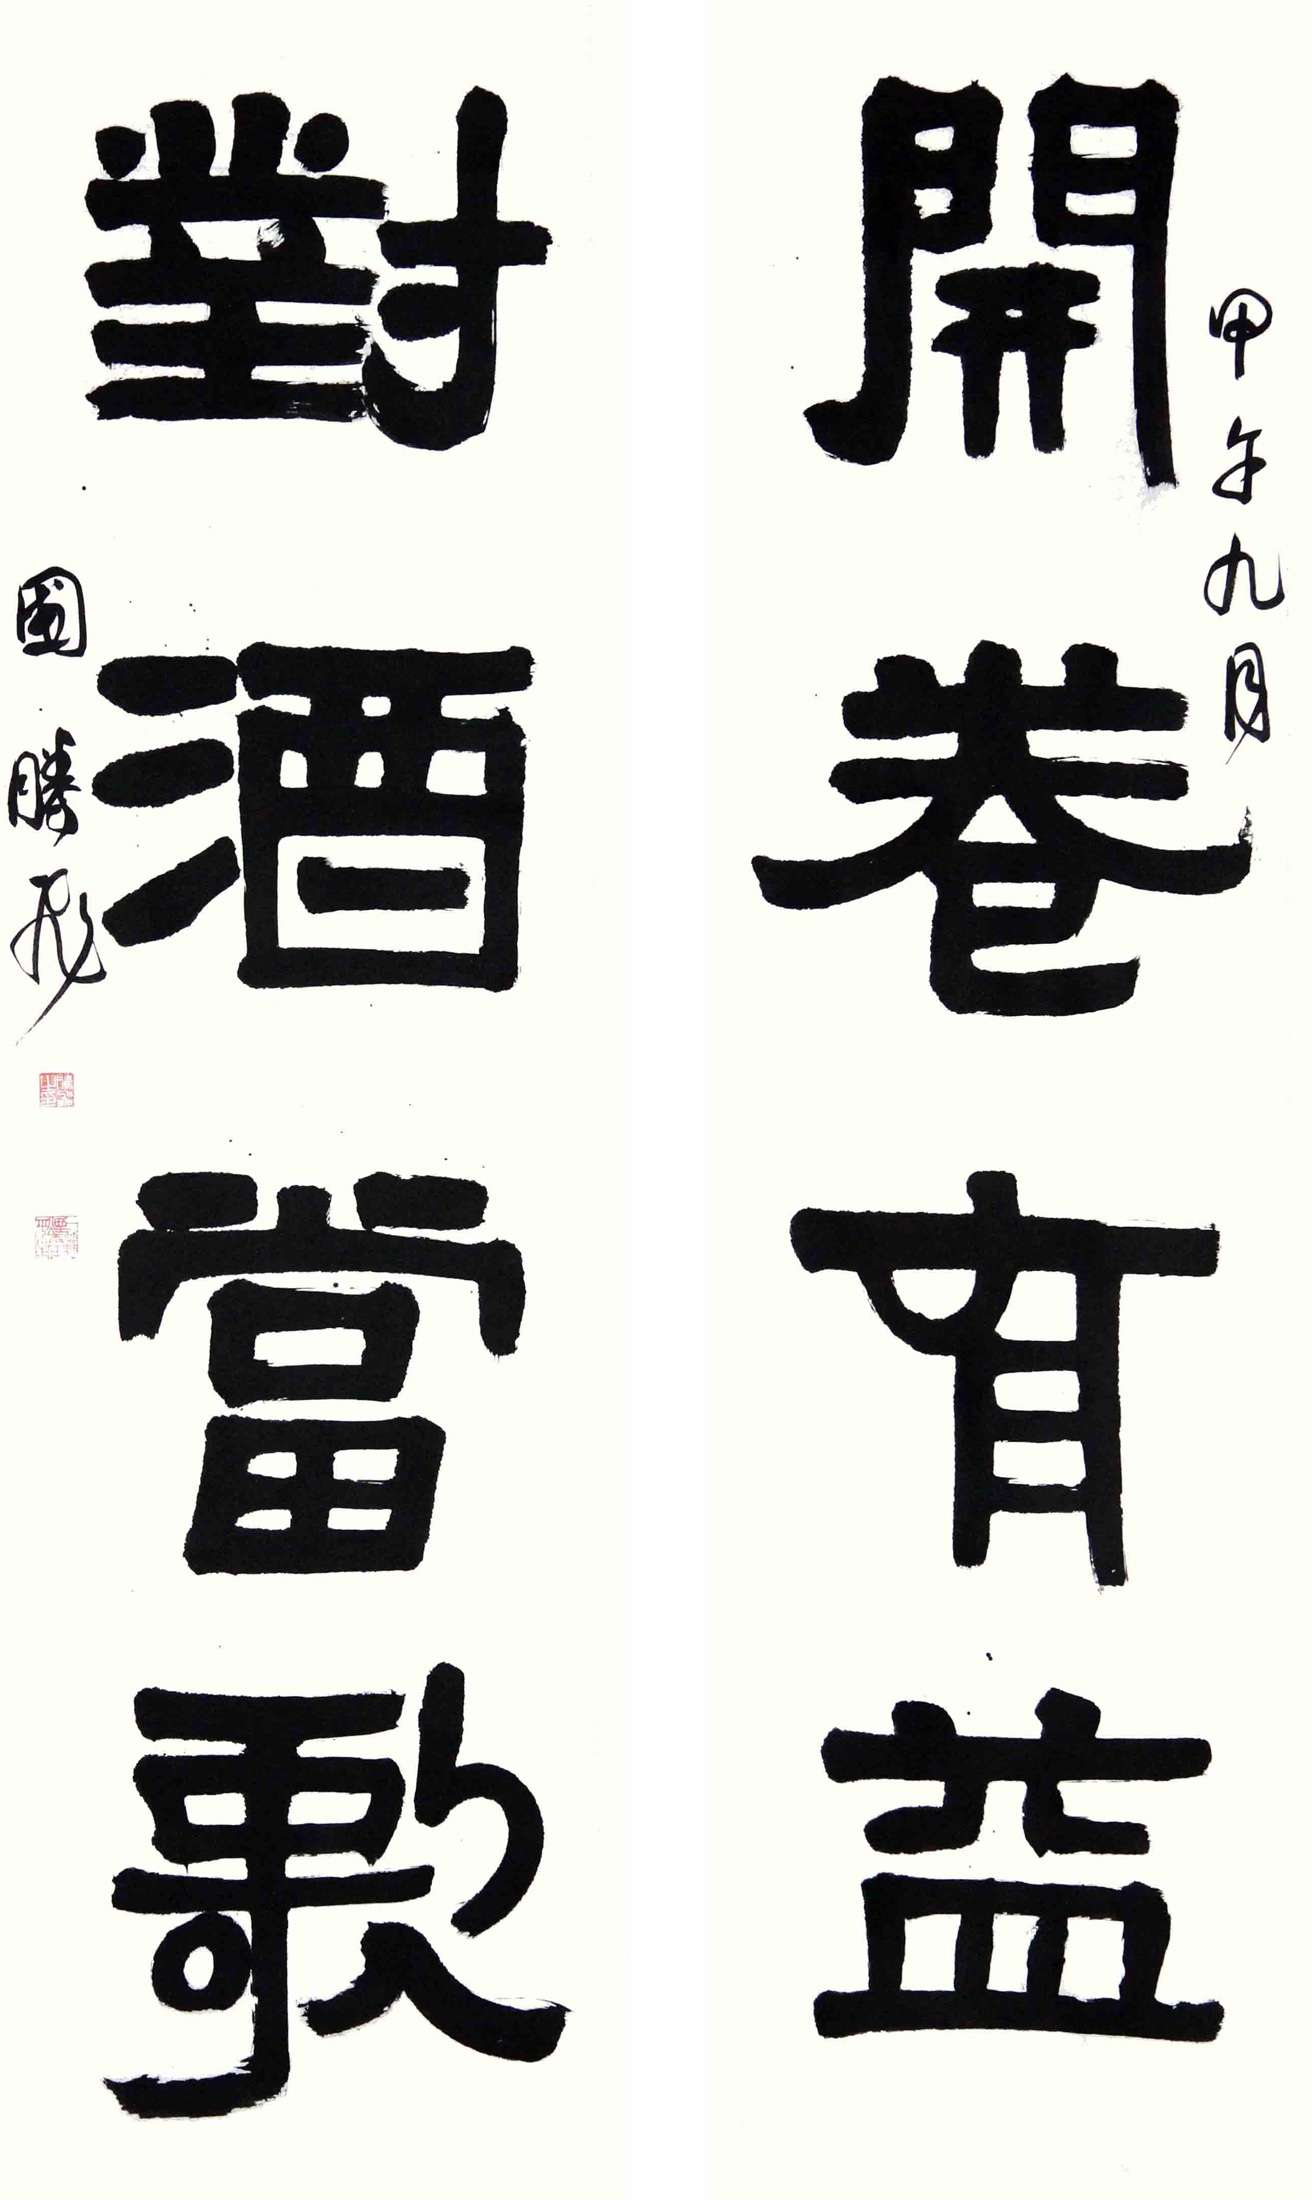 甲午九月
開卷有益
對酒當歌
國勝